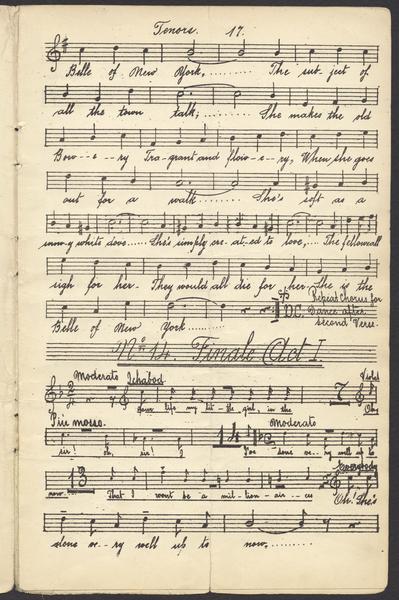 Tenors. 17.
Belle of New York, ......... The sub- ject of
all the town talk; ......... She makes the old
Bow--e--ry Fragrant and flow-e-ry, When she goes
out for a walk ......... She's soft as a
snow-y white dove ..... She's simply cre-at-ed to love, ... The fellows all
sigh for her. They would all die for her. She is the
Belle of New York ..........
D.C. Repeat Chorus for
Dance after
second Verse.
No 14. Finale Act I.
Moderato Ichabod 7 Violet
your life my lit-tle girl, in the Oh,
Piu mosso. 14 Moderato
sir! Oh, sir! I've done ve-ry well up to
13 Everybody
now. That I wont be a mil-lion-air... Oh! She's
done ve--ry well up to now. .........